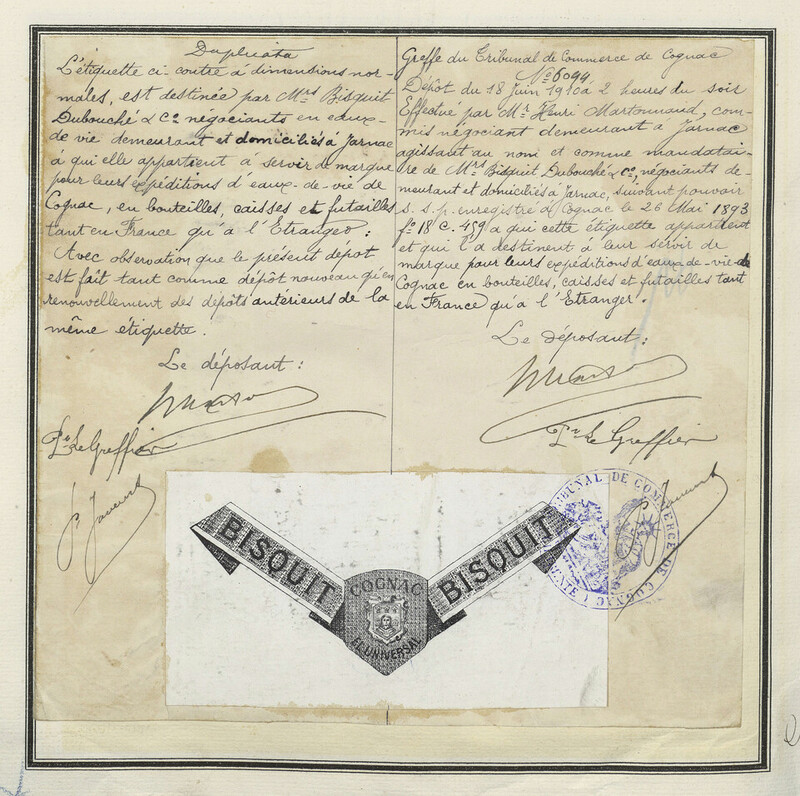 Duplicata
L'étiquette ci-contre à dimensions nor-
males, est destinée par Mrs Bisquit
Dubouché & Co négociants en eaux-
de vie demeurant et domiciliés à Jarnac
à qui elle appartient à servir de marque
pour leurs expéditions d'eaux-de-vie de
Cognac, en bouteilles, caisses et futailles
tant en France qu'à l'Etranger :
Avec observation que le présent dépôt
est fait tant comme dépôt nouveau qu'en
renouvellement des dépôts antérieurs de la
même étiquette.
Le déposant :
Pr Le Greffier
Greffe du Tribunal de Commerce de Cognac
No 6094
Dépôt du 18 Juin 1910 à 2 heures du soir
Effectué par Mr Henri Martonnaud, com-
mis négociant demeurant à Jarnac
agissant au nom et comme mandatai-
re de Mrs Bisquit Dubouché & Co, négociants de-
meurant et domiciliés à Jarnac, suivant pouvoir
s. s. p. enregistré à Cognac le 26 Mai 1893
fo 18 C. 459 à qui cette étiquette appartient
et qui l'a destinent à leur servir de
marque pour leurs expéditions d'eaux-de-vie de
Cognac en bouteilles, caisses et futailles tant
en France qu'à l'Etranger.
Le déposant :
Pr Le Greffier
BISQUIT
COGNAC
EL UNIVERSAL
BISQUIT
TRIBUNAL DE COMMERCE DE COGNAC